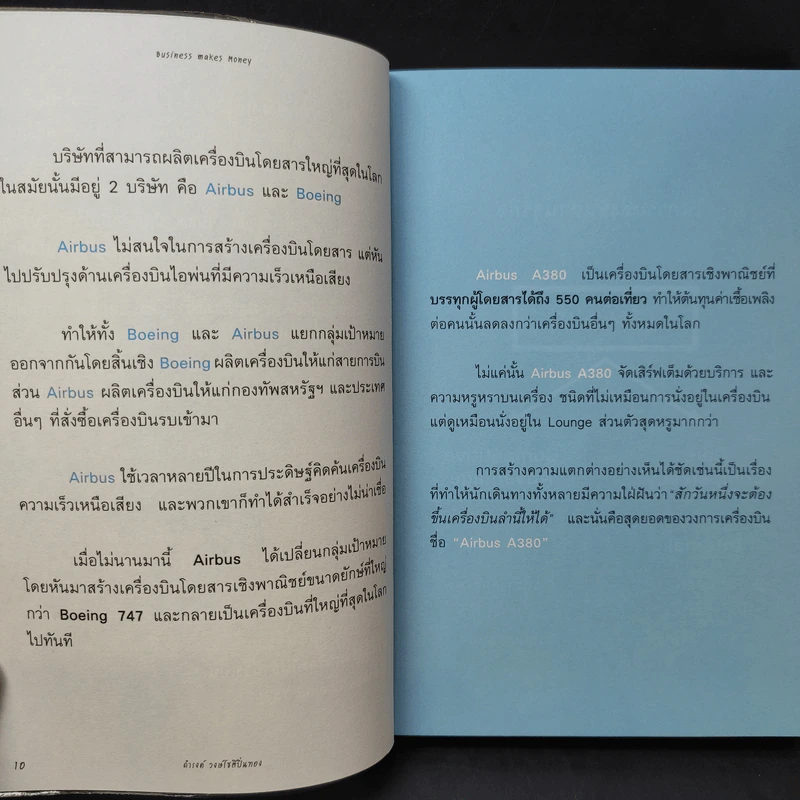 Business makes Money
บริษัทที่สามารถผลิตเครื่องบินโดยสารใหญ่ที่สุดในโลก
ในสมัยนั้นมีอยู่ 2 บริษัท คือ Airbus และ Boeing
Airbus ไม่สนใจในการสร้างเครื่องบินโดยสาร แต่หัน
ไปปรับปรุงด้านเครื่องบินไอพ่นที่มีความเร็วเหนือเสียง
ทำให้ทั้ง Boeing และ Airbus แยกกลุ่มเป้าหมาย
ออกจากกันโดยสิ้นเชิง Boeing ผลิตเครื่องบินให้แก่สายการบิน
ส่วน Airbus ผลิตเครื่องบินให้แก่กองทัพสหรัฐฯ และประเทศ
อื่นๆ ที่สั่งซื้อเครื่องบินรบเข้ามา
Airbus ใช้เวลาหลายปีในการประดิษฐ์คิดค้นเครื่องบิน
ความเร็วเหนือเสียง และพวกเขาก็ทำได้สำเร็จอย่างไม่น่าเชื่อ
เมื่อไม่นานมานี้ Airbus ได้เปลี่ยนกลุ่มเป้าหมาย
โดยหันมาสร้างเครื่องบินโดยสารเชิงพาณิชย์ขนาดยักษ์ที่ใหญ่
กว่า Boeing 747 และกลายเป็นเครื่องบินที่ใหญ่ที่สุดในโลก
ไปทันที
10 ดำรงค์ วงษ์โชติปิ่นทอง
Airbus A380 เป็นเครื่องบินโดยสารเชิงพาณิชย์ที่
บรรทุกผู้โดยสารได้ถึง 550 คนต่อเที่ยว ทำให้ต้นทุนค่าเชื้อเพลิง
ต่อคนนั้นลดลงกว่าเครื่องบินอื่นๆ ทั้งหมดในโลก
ไม่แค่นั้น Airbus A380 จัดเสิร์ฟเต็มด้วยบริการ และ
ความหรูหราบนเครื่อง ชนิดที่ไม่เหมือนการนั่งอยู่ในเครื่องบิน
แต่ดูเหมือนนั่งอยู่ใน Lounge ส่วนตัวสุดหรูมากกว่า
การสร้างความแตกต่างอย่างเห็นได้ชัดเช่นนี้เป็นเรื่อง
ที่ทำให้นักเดินทางทั้งหลายมีความใฝ่ฝันว่า "สักวันหนึ่งจะต้อง
ขึ้นเครื่องบินลำนี้ให้ได้" และนั่นคือสุดยอดของวงการเครื่องบิน
ชื่อ "Airbus A380"